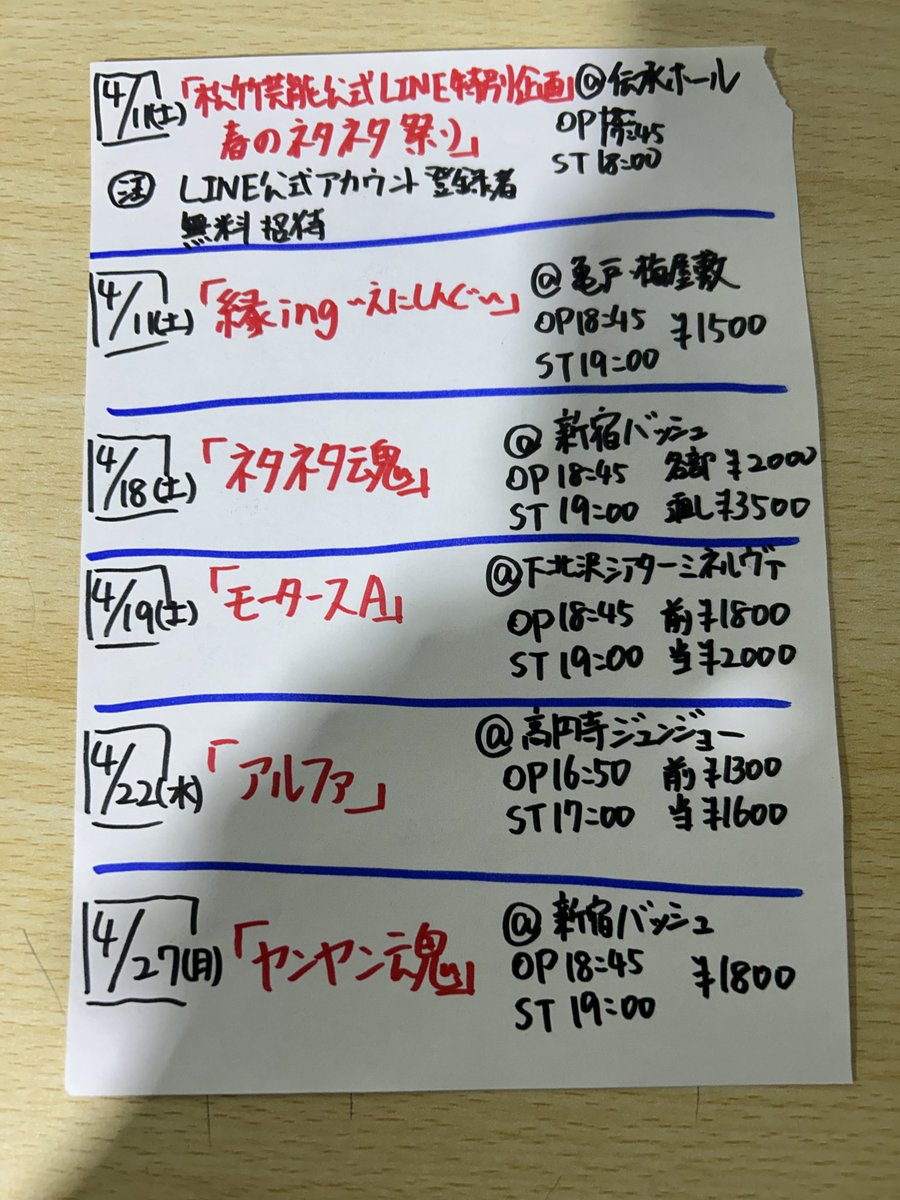 4/11(土) 「松竹芸能公式LINE特別企画 @伝承ホール
春のネタネタ祭り」 OP :45
ST 18:00
注 LINE公式アカウント登録者
無料招待
4/11(土) 「縁ing~えにしんぐ~」 @亀戸・梅屋敷
OP18:45 ¥1500
ST19:00
4/18(土) 「ネタネタ魂」 @新宿バッシュ
OP18:45 ¥2000
ST19:00 ¥3500
4/19(土) 「モータースA」 @下北沢シアターミネルヴァ
OP18:45 前¥1800
ST19:00 当¥2000
4/22(水) 「アルファ」 @高円寺ジュンジョー
OP16:50 前¥1300
ST17:00 当¥1600
4/27(月) 「ヤンヤン魂」 @新宿バッシュ
OP18:45 ¥1800
ST19:00